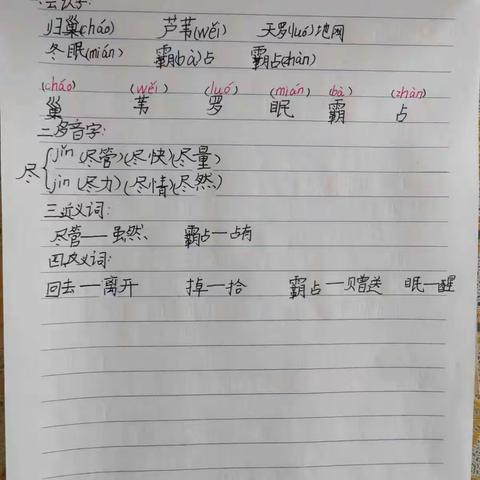 会认字:
归巢(cháo) 芦苇(wěi) 天罗(luó)地网
冬眠(mián) 霸(bà)占 霸占(zhàn)
(cháo) (wěi) (luó) (mián) (bà) (zhàn)
巢 苇 罗 眠 霸 占
二多音字:
尽 jǐn (尽管)(尽快)(尽量)
jìn (尽力)(尽情)(尽然)
三近义词:
尽管——虽然 霸占—占有
四反义词:
回去—离开 掉—拾 霸占—赠送 眠—醒